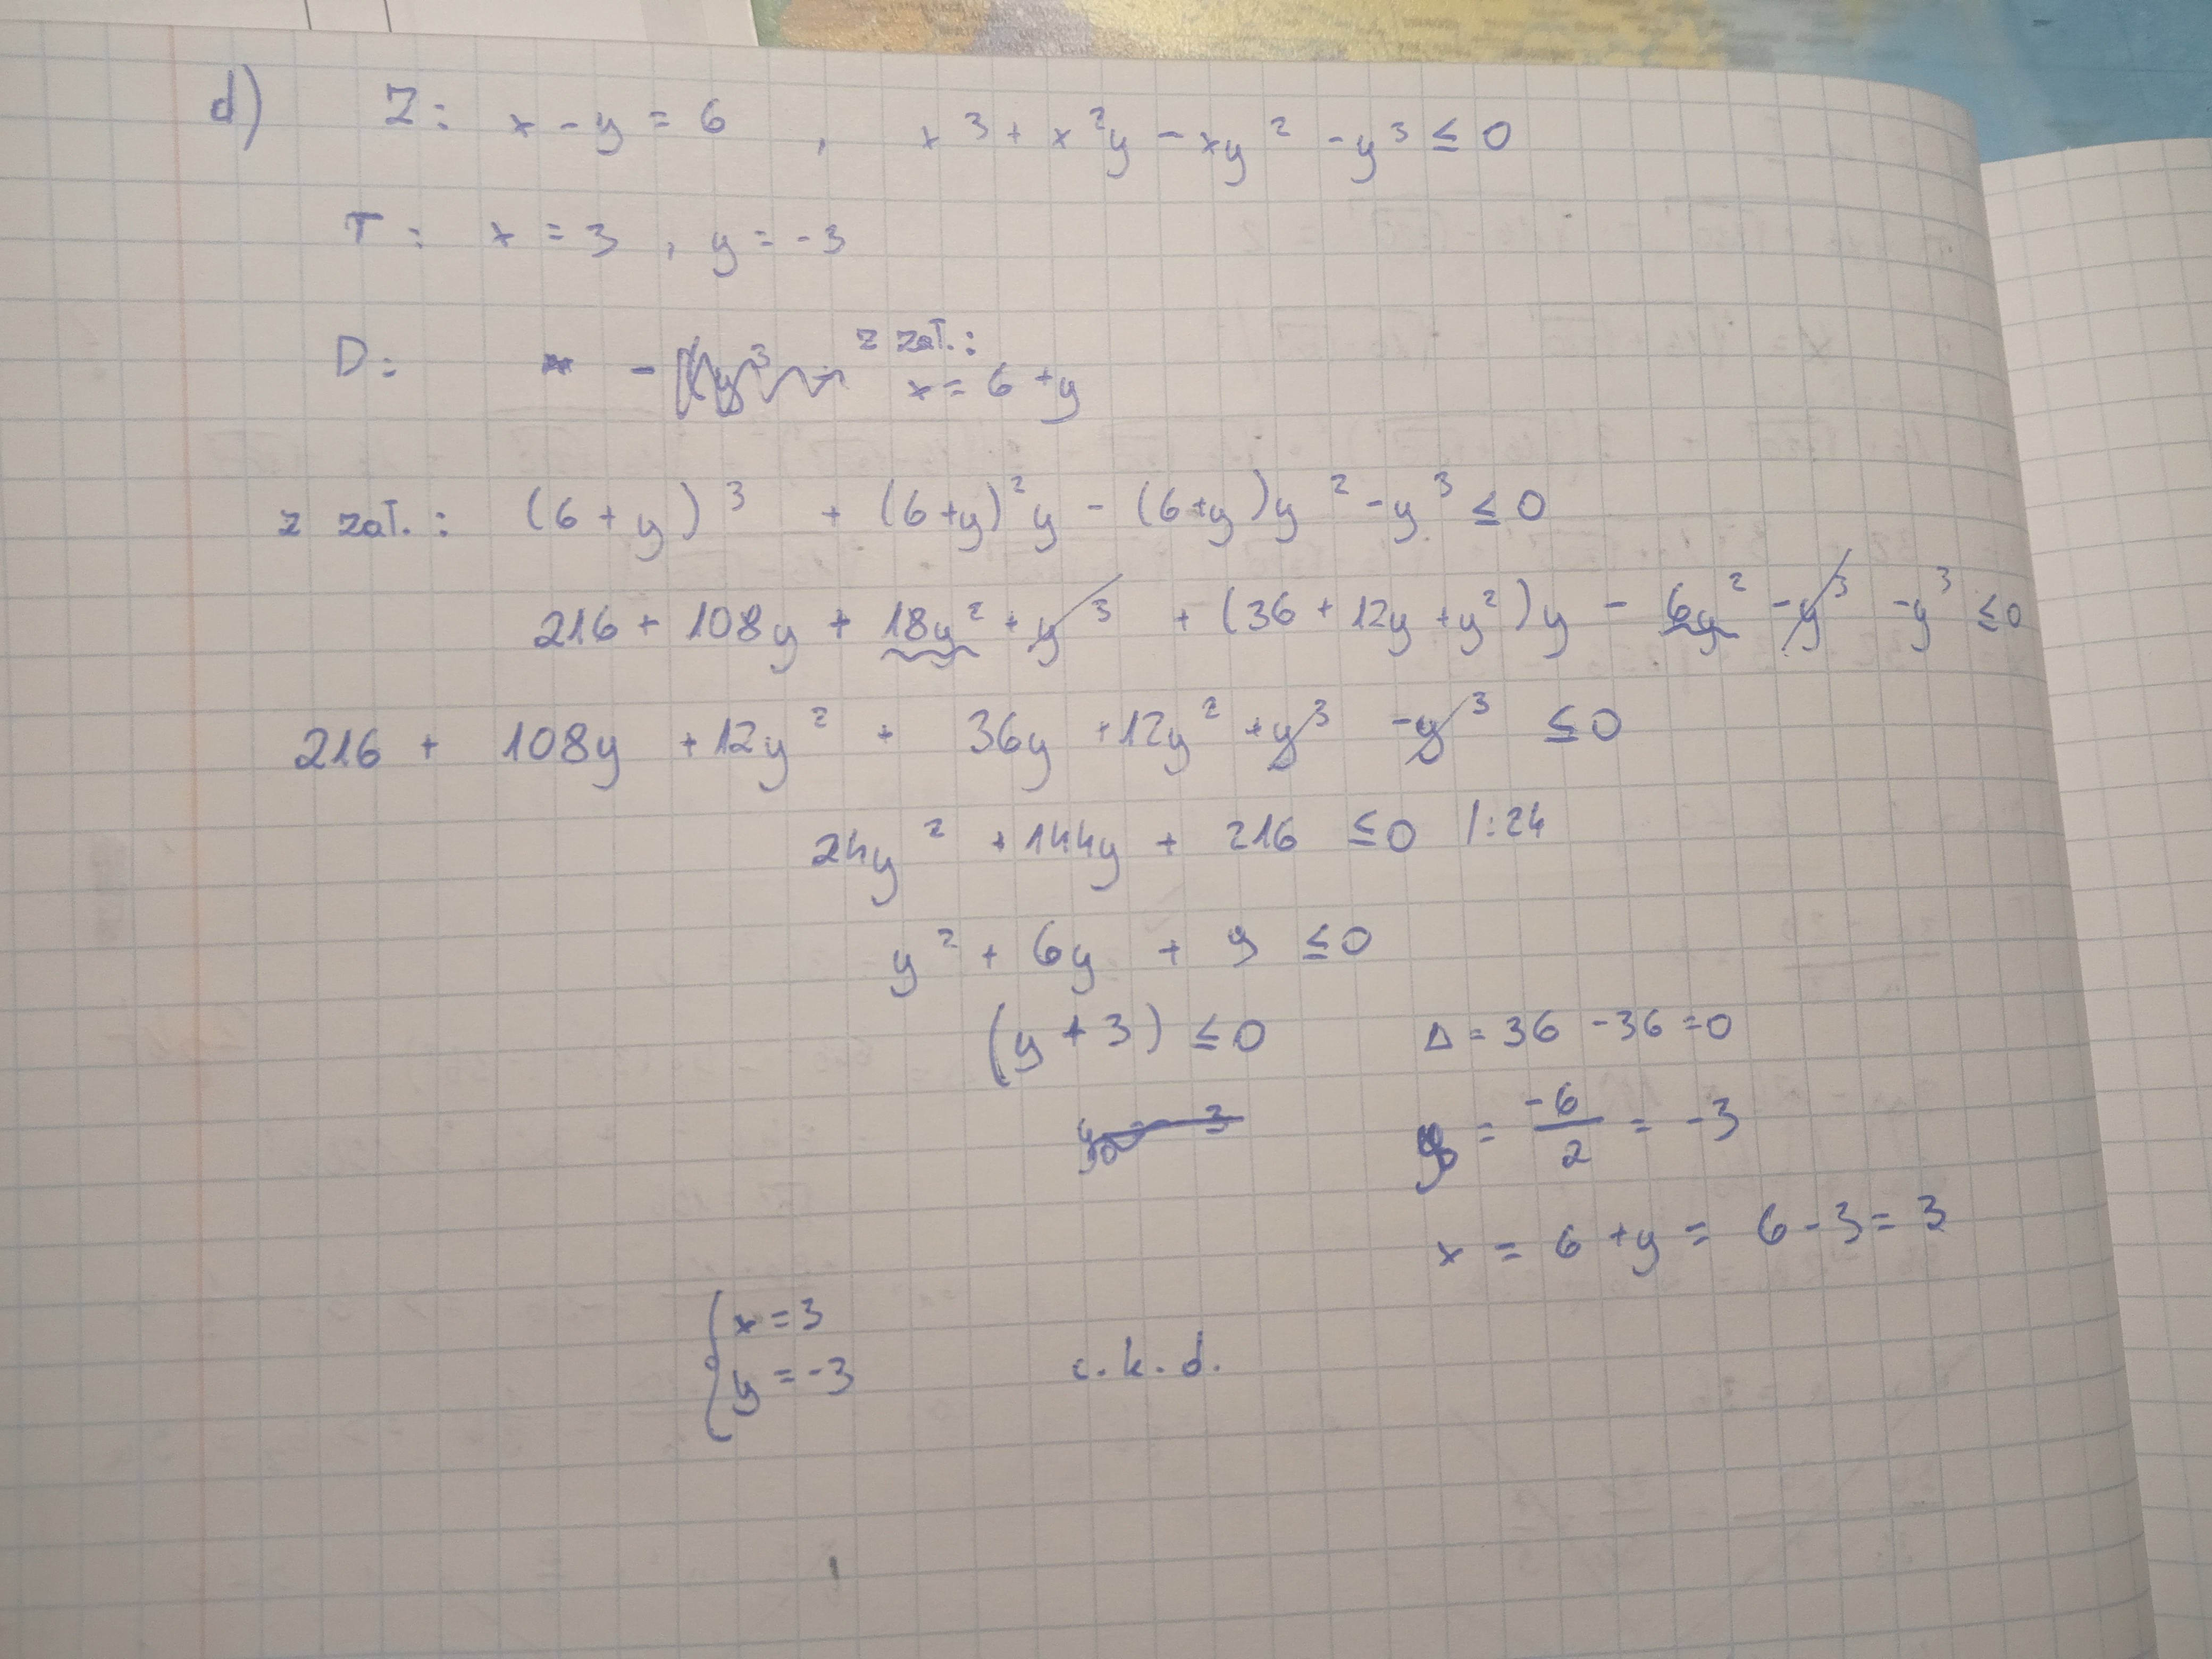 d) Z: x - y = 6 , x³ + x²y - xy² - y³ ≤ 0
T: x = 3 , y = -3
D: - z zał.:
x = 6 + y
z zał.: (6 + y)³ + (6+y)²y - (6+y)y² - y³ ≤ 0
216 + 108y + 18y² + y³ + (36 + 12y + y²)y - 6y² - y³ - y³ ≤ 0
216 + 108y + 12y² + 36y + 12y² + y³ - y³ ≤ 0
24y² + 144y + 216 ≤ 0 /:24
y² + 6y + 9 ≤ 0
(y + 3) ≤ 0 Δ = 36 - 36 = 0
y = -6/2 = -3
x = 6 + y = 6 - 3 = 3
{ x = 3
y = -3 c.k.d.